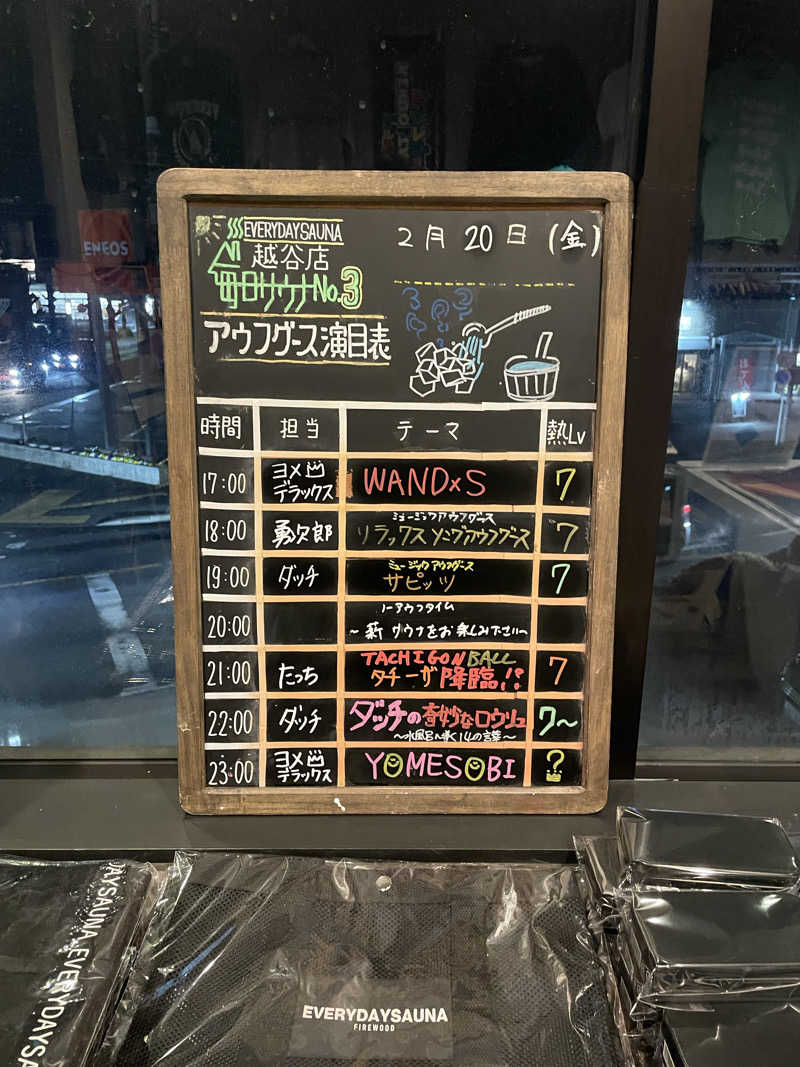 ENEOS
EVERYDAYSAUNA
越谷店
毎日サウナNo.3
2月20日(金)
アウフグース演目表
時間 担当 テーマ 熱Lv
17:00 ヨメ デラックス WANDxS 7
ミュージックアウフグース
18:00 勇次郎 リラックス ソングアウフグース 7
ミュージックアウフグース
19:00 ダッチ サピッツ 7
ノーアウフタイム
20:00 ~薪サウナをお楽しみ下さい~
TACHIGONBALL
21:00 たっち タチーザ降臨!? 7
22:00 ダッチ ダッチの奇妙なロウリュ 7~
の言葉~
23:00 ヨメ デラックス YOMESOBI ?
EVERYDAYSAUNA
FIREWOOD
DAYSAUNA EVERYDAYSA